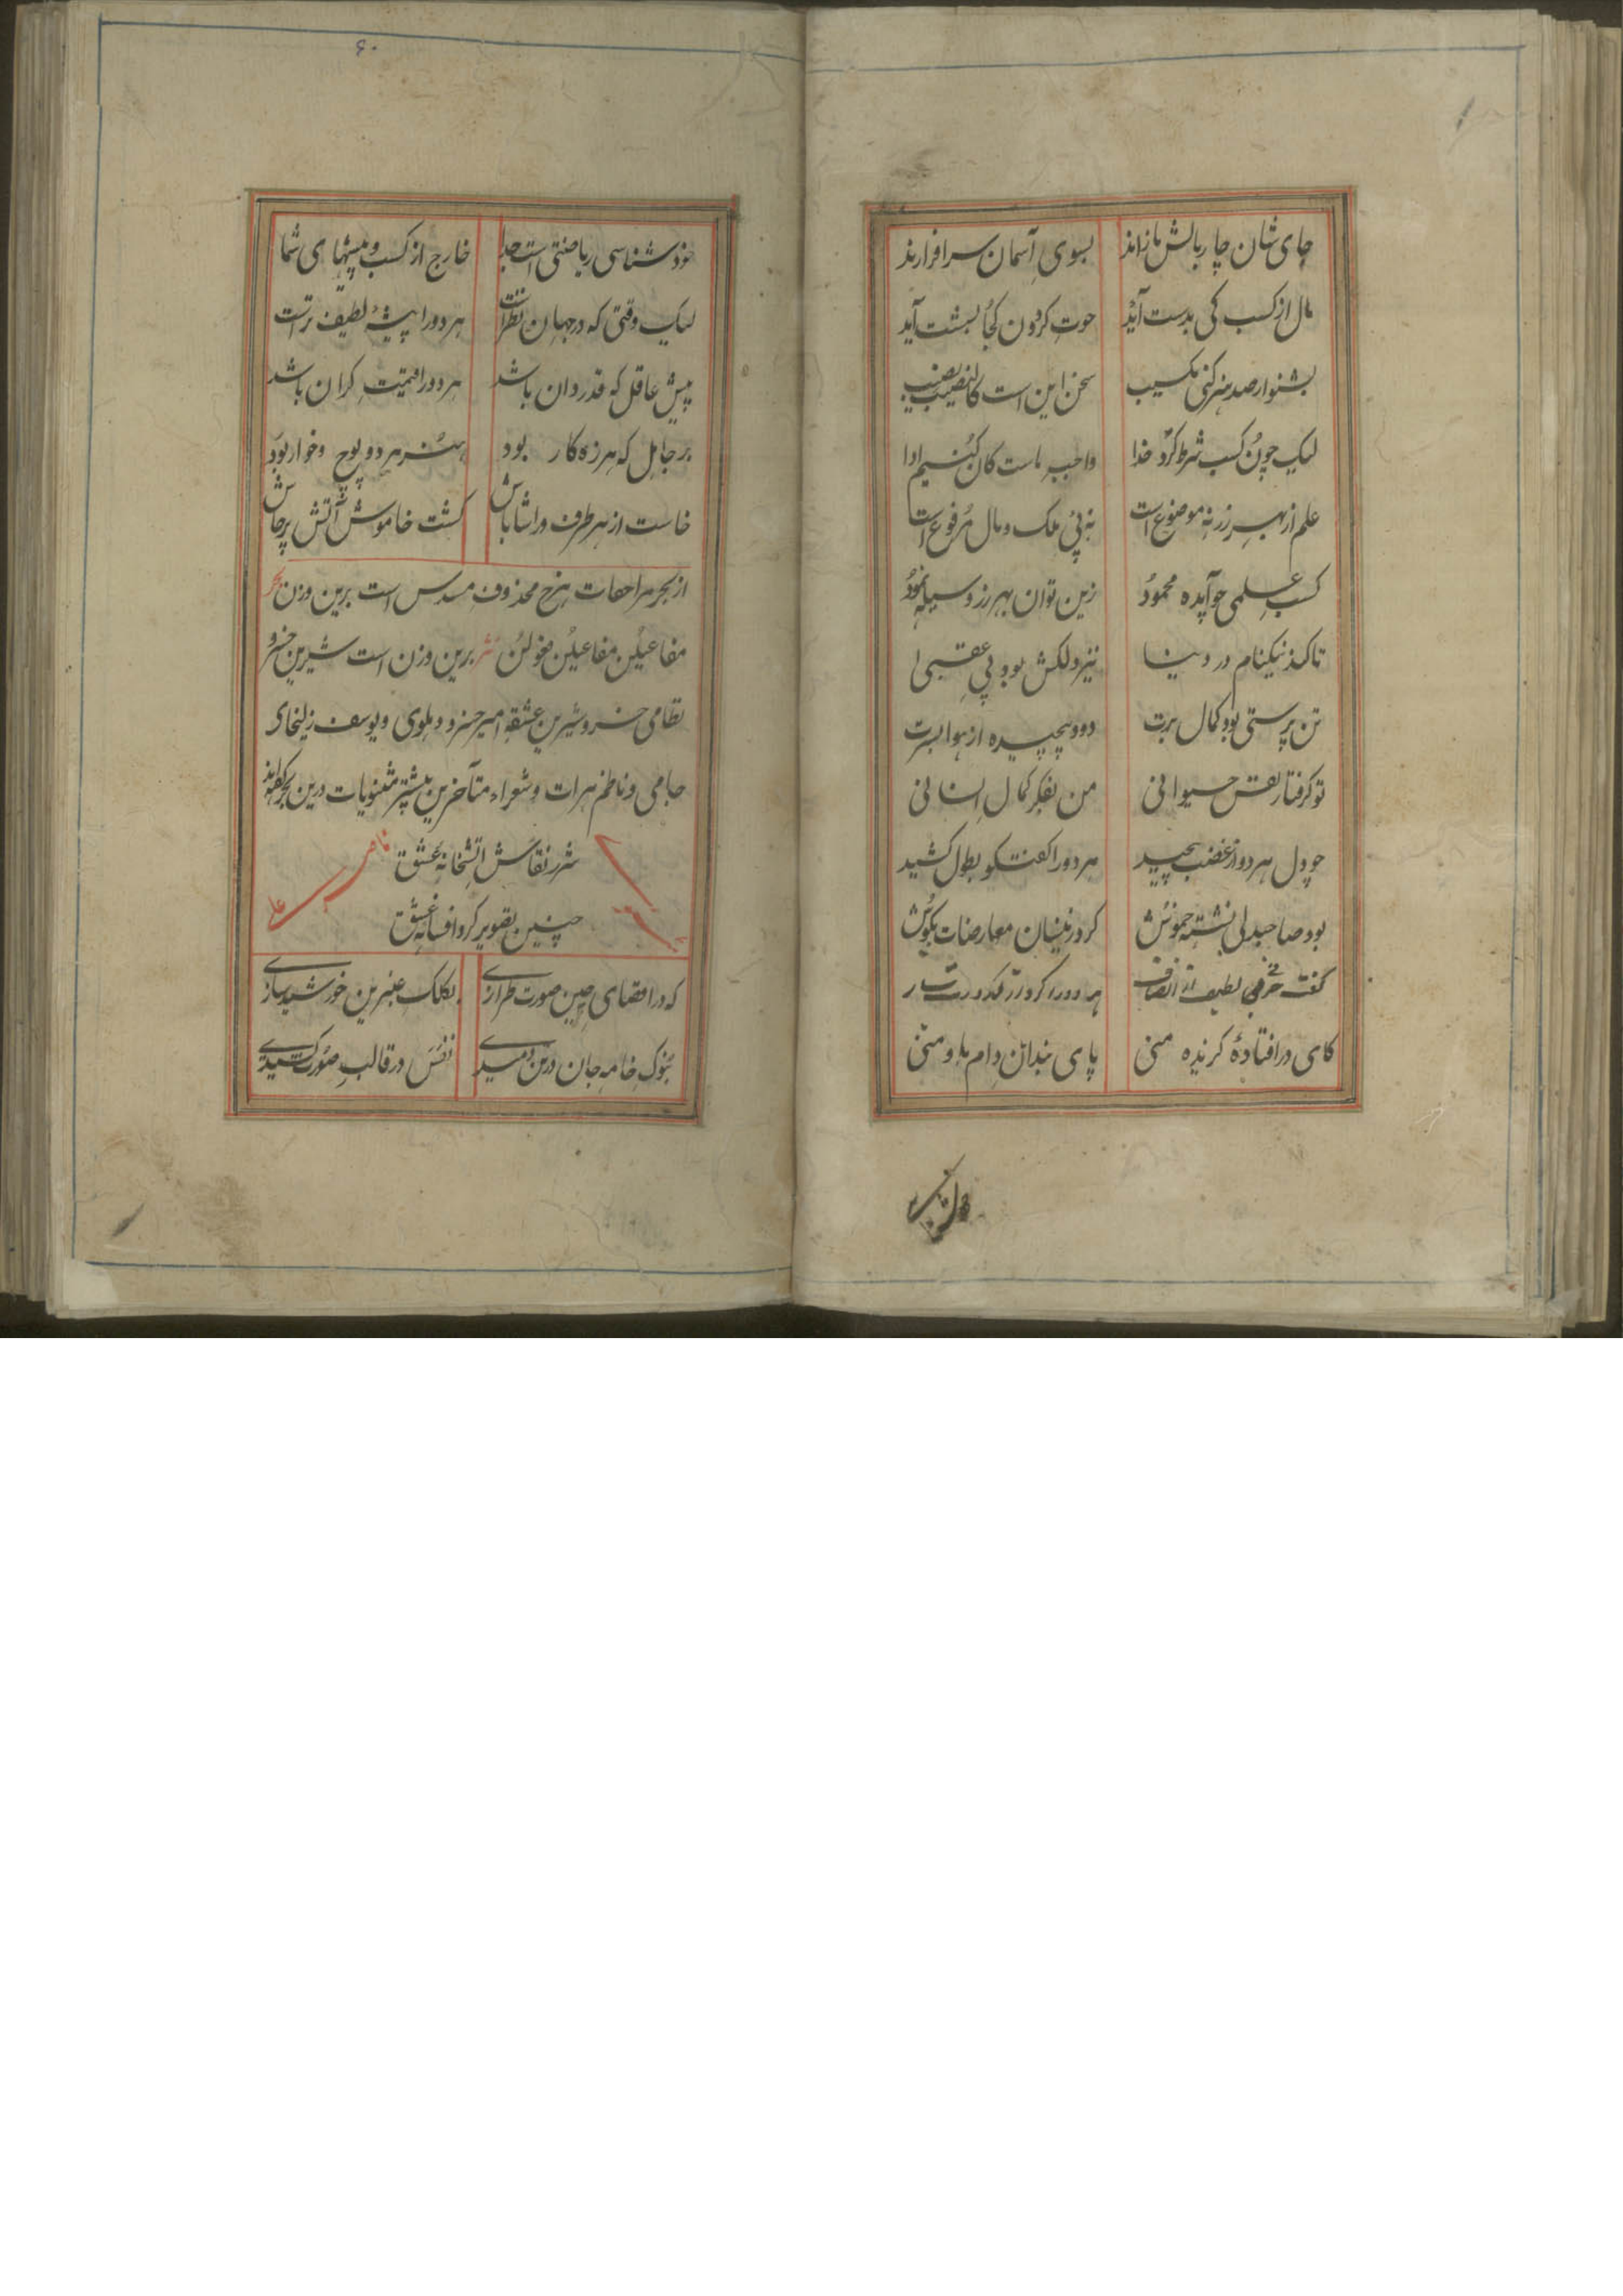 جای شان چار بالش نازاند بسوی آسمان سرافرازند
مال از کسب کی بدست آید حوت کردون کجا بشست آید
بشنو ار صد هنر کنی تکسیب سخن این است کالنصیب یصیب
لیک چون کسب شرط کرد خدا واجب ماست کان کنیم ادا
علم از بهر زر نه موضوع است نه پی ملک و مال مرفوع است
کسب علمی جو آیده محمود زین توان بهر رز و سیله نمود
تا کند نیکنام در دنیا نیز دلکش بود پی عقبی
تن پرستی بود کمال برت دود پیچیده از هوا بسرت
تو کرفتار نفس حیوانی من بفکر کمال انسانی
جو دل هر دو از غضب پیچید هر دو را کفتکو بطول کشید
بود صاحبدلی نشسته خموش کرد زینسان معارضات بکوش
کفت حرفی لطیف از انصاف هر دو را کرد از کدورت صاف
کای در افتادهٔ کرندهٔ منی پای بندان دام ما و منی
خود شناسی ریاضتی است جدا خارج از کسب و پیشهای شما
لیک وقتی که در جهان نظر است هر دو را پیشهٔ لطیف تر است
پیش عاقل که قدردان باشد هر دو را قیمت کران باشد
بر جاهل که هرزه کار بود هنر هر دو پوچ و خوار بود
خاست از هر طرف ورا شاباش کشت خاموش آتش پرخاش
از بحر مزاحفات هزج محذوف مسدس است برین وزن بحر
مفاعیلن مفاعیلن فعولن نثر برین وزن است شیرین خسرو
نظامی خسرو شیرین عشقه امیر خسرو دهلوی و یوسف زلیخای
جامی و ناظم هرات و شعراء متآخرین بیشتر مثنویات درین بحر گفته‌اند
شرر نقاش آتشخانه عشق ناصر
چنین تصویر کرد افسانه عشق علی
که در اقصای چین صورت طرازی بکلک عنبرین خورشید سازی
بنوک خامه جان در تن دمیدی نفس در قالب صورت کشیدی